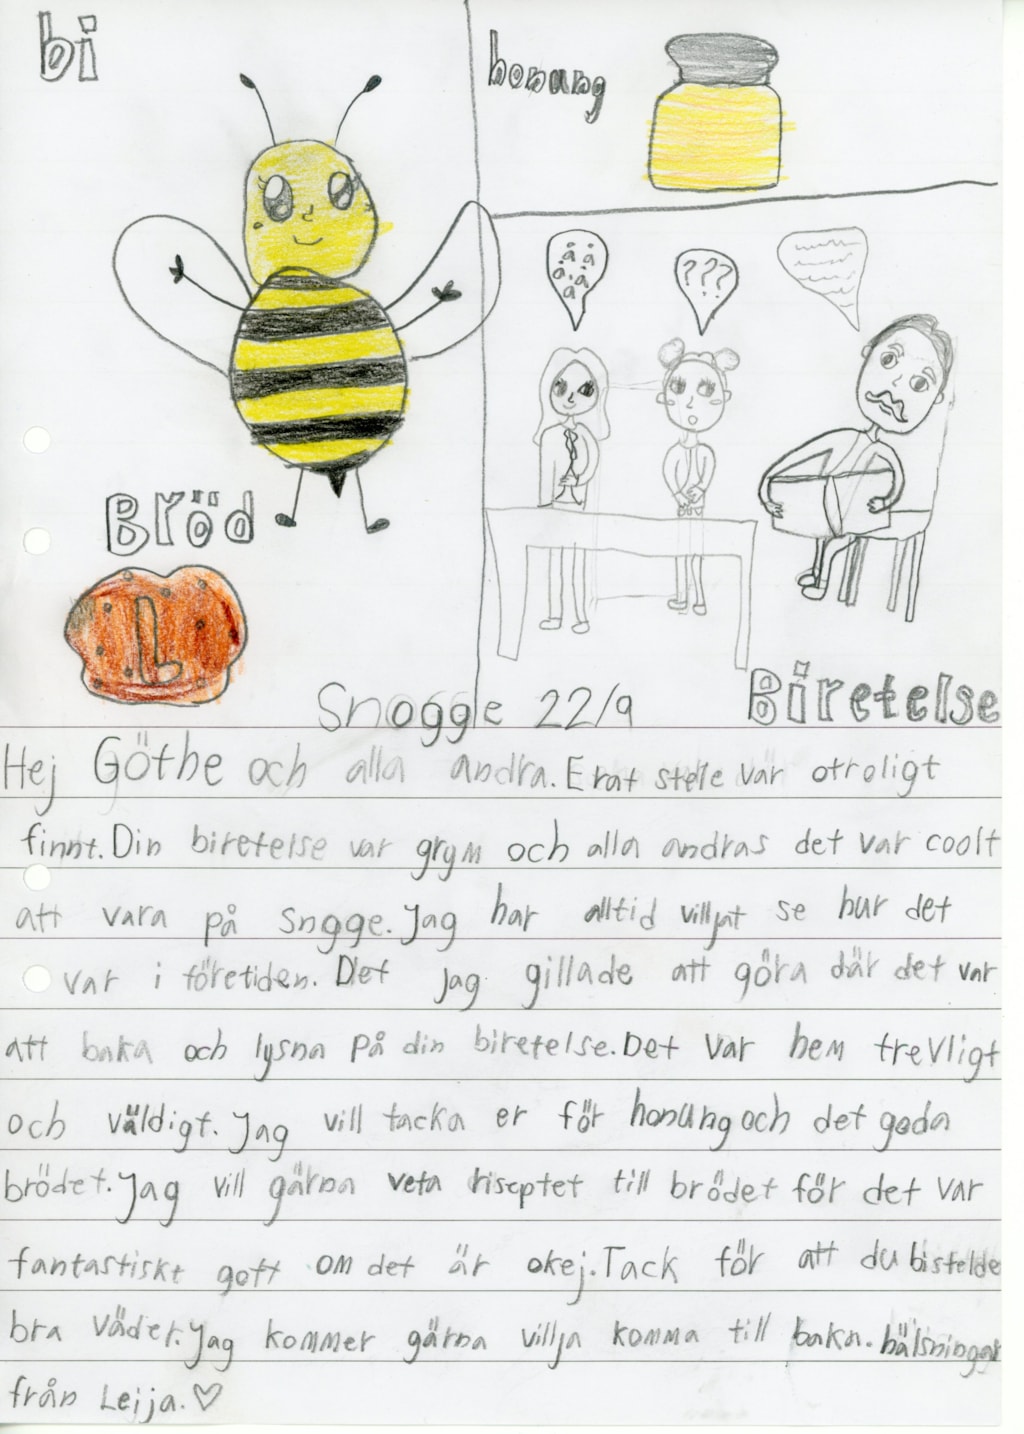 bi
honung
???
Bröd
L
Snoggle 22/9
Biretelse
Hej Göthe och alla andra. Erat stele var otroligt
finnt. Din biretelse var grym och alla andras det var coolt
att vara på Sngge. Jag har alltid villjat se hur det
var i företiden. Det jag gillade att göra där det var
att baka och lysna på din biretelse. Det var hem trevligt
och väldigt. Jag vill tacka er för honung och det goda
brödet. Jag vill gärna veta riseptet till brödet för det var
fantastiskt gott om det är okej. Tack för att du bistelde
bra väder. Jag kommer gärna villja komma till baka. hälsningar
från Leija. ♡